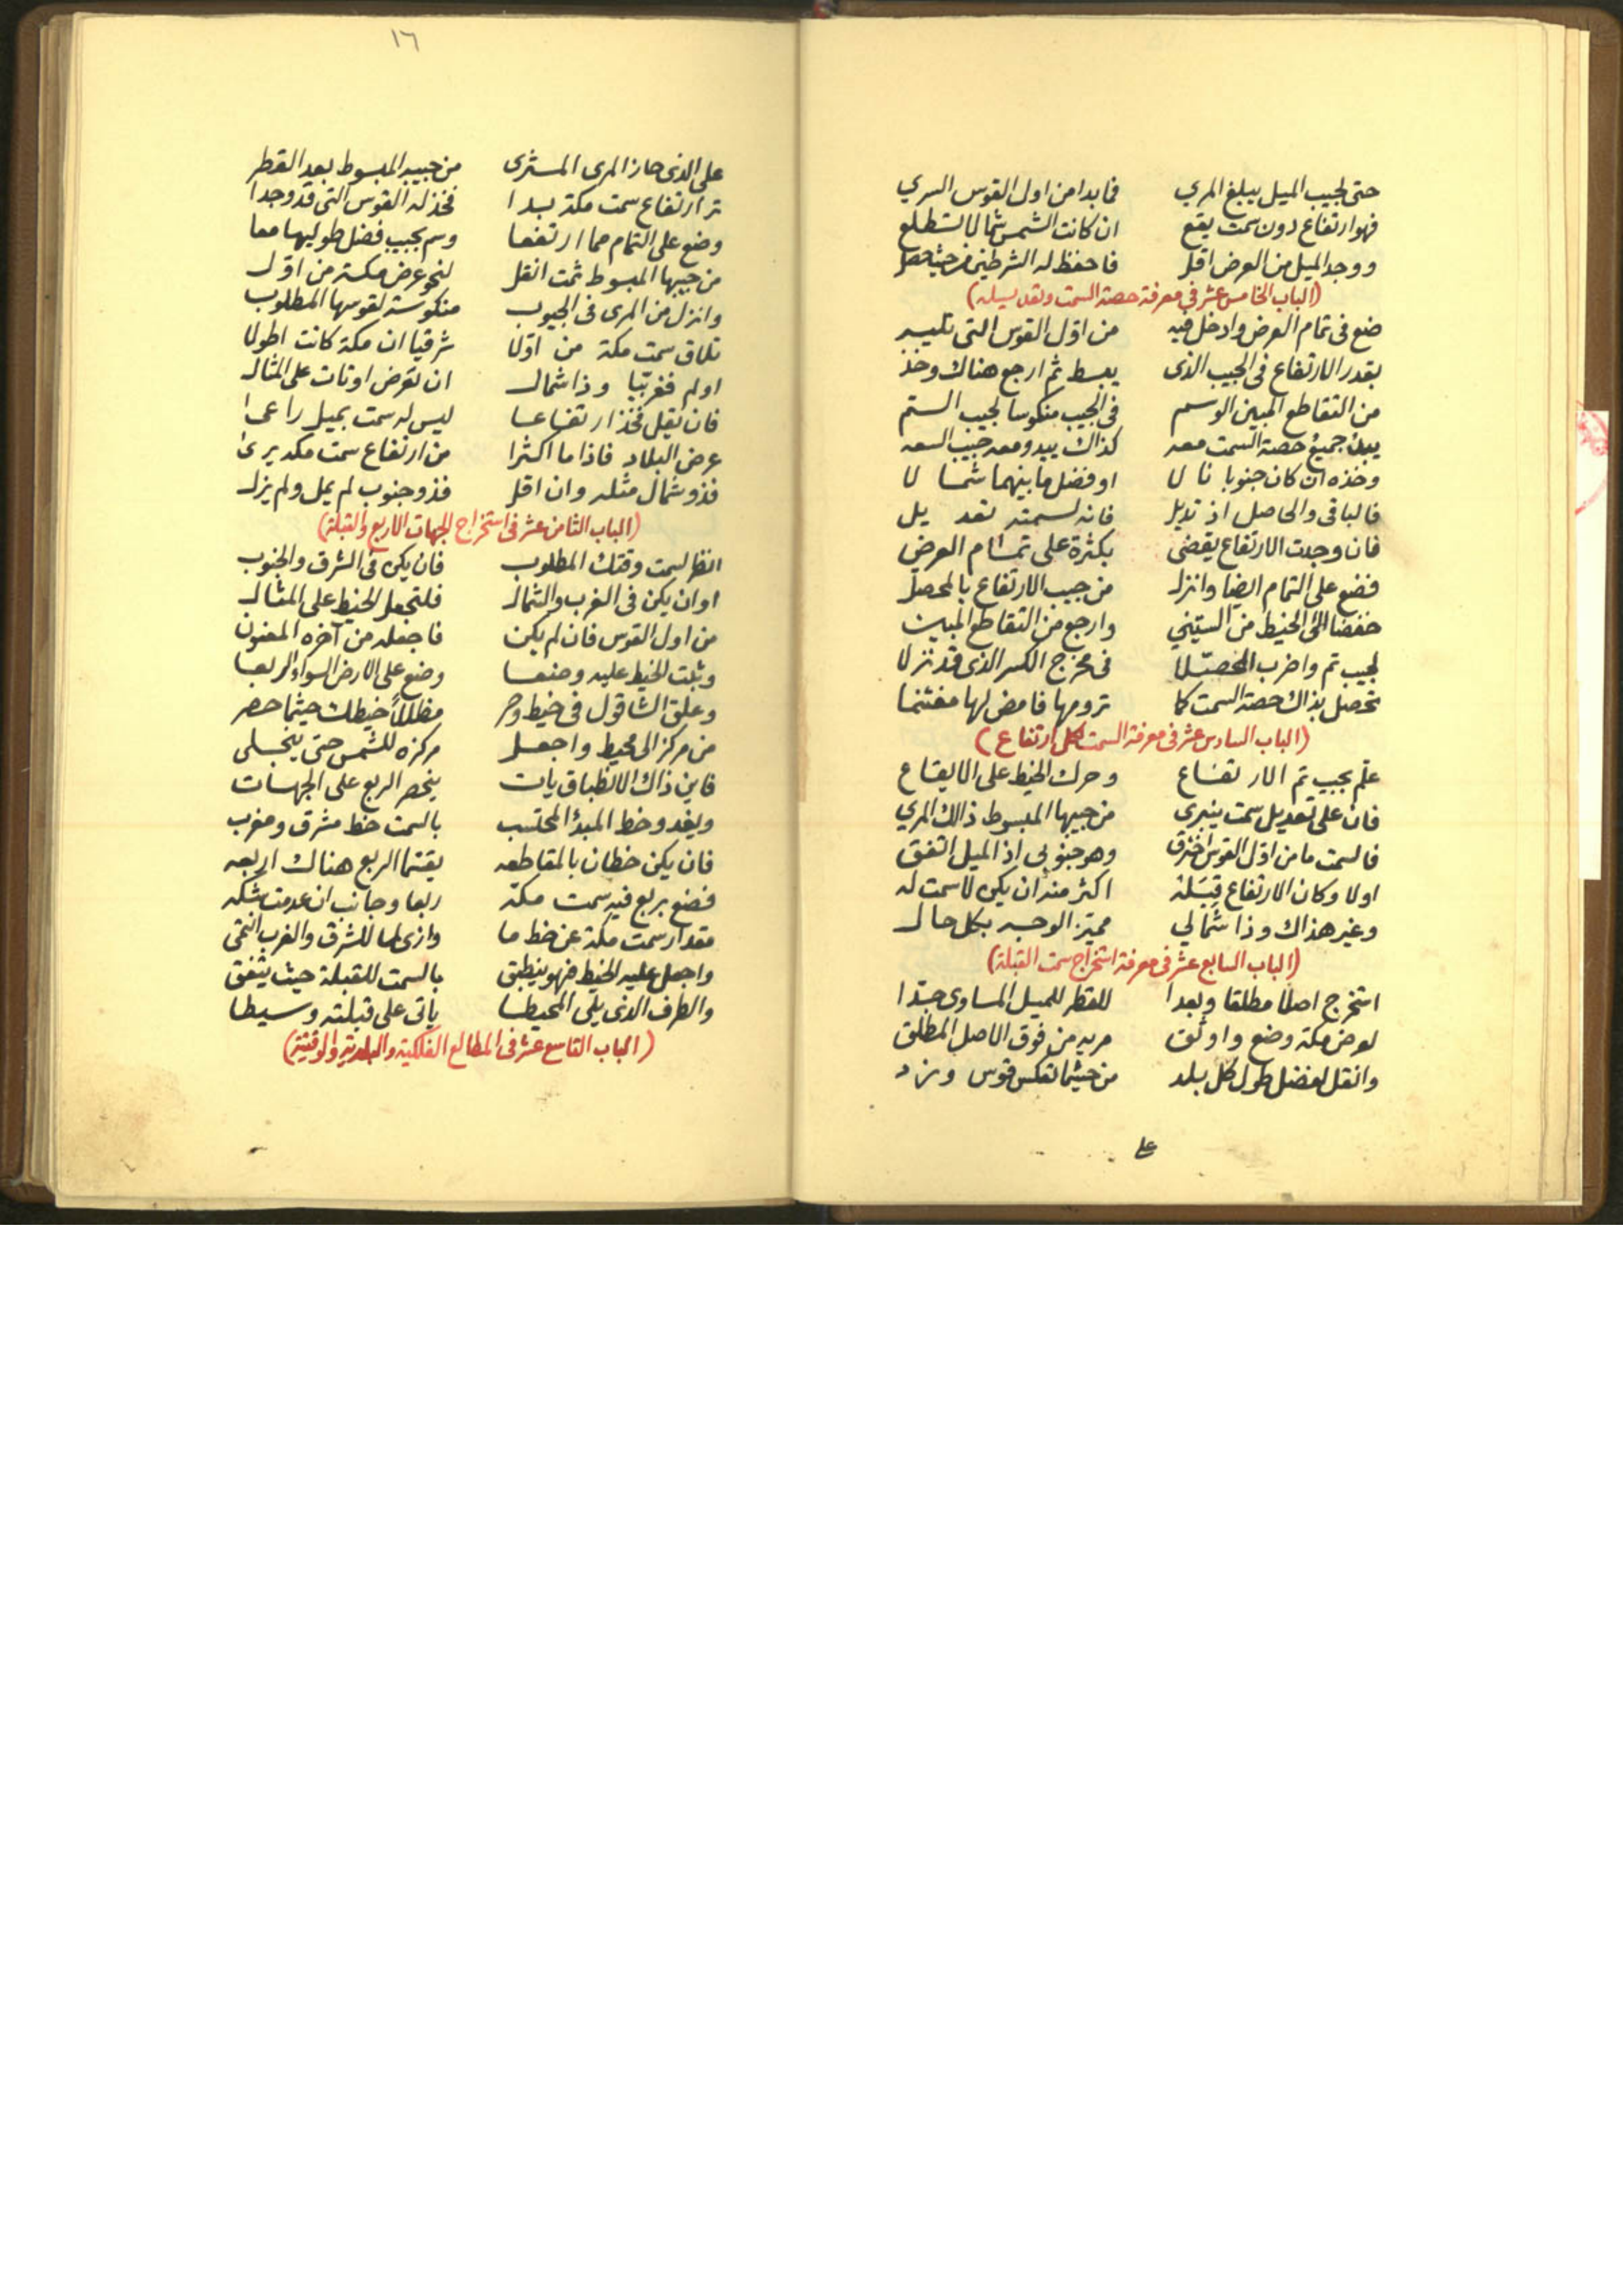 حتى لجيب الميل يبلغ المري فما بدا من اول القوس السري
فهو ارتفاع دون سمت يقع ان كانت الشمس شمالا تستطلع
ووجد الميل من العرض اقل فاحفظ له الشرطين من حيث حصل
(الباب الخامس عشر في معرفة حصة السمت وتعديله)
ضع في تمام العرض وادخل فيه من اول القوس التي تليه
بقدر الارتفاع في الجيب الذي يبسط ثم ارجع هناك وخذ
من التقاطع المبين الوسم في الجيب منكوسا لجيب الستم
جميع حصة السمت معه كذاك يبدو معه جيب السعه
وخذه ان كان جنوبا نالا او فضل ما بينهما شمالا
فالباقي والحاصل اذ تديل فانه لسمته تعديل
فان وجدت الارتفاع يقضي بكثرة على تمام العرض
فضع على التمام ايضا وانزل من جيب الارتفاع بالمحصل
خفضا الى الخيط من الستيني وارجع من التقاطع المبين
لجيب تم واضرب المحصلا في مخرج الكسر الذي قد نزلا
تحصل بذاك حصة السمت كما ترومها فامض لها مغتنما
(الباب السادس عشر في معرفة السمت لكل ارتفاع)
علم بجيب تم الارتفاع وحرك الخيط على الايقاع
فان على تعديل سمت ينبري من جيبها المبسوط ذالك المري
فالسمت ما من اول القوس اخترق وهو جنوبي اذ الميل اتفق
اولا وكان الارتفاع قبله اكثر منه ان يكن لا سمت له
وغير هذاك وذا شمالي مميز الوجه بكل حال
(الباب السابع عشر في معرفة استخراج سمت القبلة)
استخرج اصلا مطلقا وبعدا للقطر للميل المساوي جدا
لعرض مكة وضع واوثق مريه من فوق الاصل المطلق
وانقل لفضل طول كل بلد من حيثما تعكس قوس وزد
على
١٦
على الذي حاز المري المسترى من جيبه المبسوط بعد القطر
تر ارتفاع سمت مكة بدا فخذ له القوس التي قد وجدا
وضع على التمام مما ارتفعا وسم بجيب فضل طوليها معا
من جيبها المبسوط ثمت انقل لنحو عرض مكة من اول
وانزل من المري في الجيوب منكوسة لقوسها المطلوب
تلاق سمت مكة من اولا شرقيا ان مكة كانت اطولا
او لم فغربيا وذا شمال ان تعرض اوتات على المثال
فان تقل فخذ ارتفاعا ليس له سمت بميل راعى
عرض البلاد فاذا ما اكثرا من ارتفاع سمت مكه يرى
فذو شمال مثله وان اقل فذو جنوب لم يمل ولم يزل
(الباب الثامن عشر في استخراج الجهات الاربع والقبلة)
انظر لسمت وقتك المطلوب فان يكن في الشرق والجنوب
او ان يكن في الغرب والشمال فلتجعل الخيط على المثال
من اول القوس فان لم يكن فاجعله من آخره المعنون
وثبت الخيط عليه وضعا وضع على الارض السواء الربعا
وعلق الشاقول في خيط وصر مظللا خيطك حيثما حصر
من مركز الى محيط واجعل مركزه للشمس حتى ينجلي
فاين ذاك الانطباق يات ينحصر الربع على الجهات
ويغدو خط المبدأ المحتسب بالسمت خط مشرق ومغرب
فان يكن خطان بالمقاطعه يقيما الربع هناك اربعه
فضع بربع فيه سمت مكة ربعا وجانب ان عدمت شكه
مقدار سمت مكة عن خط ما وازى لما للشرق والغرب انتمى
واجعل عليه الخيط فهو ينطبق بالسمت للقبلة حيث يتفق
والطرف الذي يلي المحيطا ياتي على قبلته وسيطا
(الباب التاسع عشر في المطالع الفلكية والبلدية والوقتية)